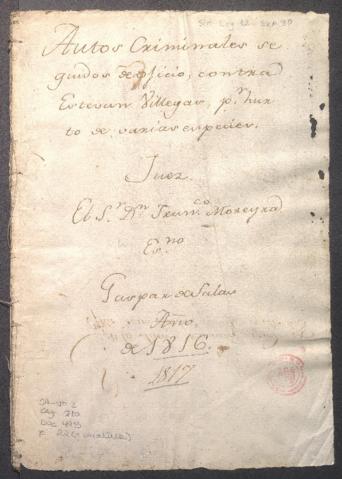 Autos Criminales se
guidos de oficio, contra
Estevan Villegas, p.r hur
to de varias especies.
Juez.
El S.r D.n Fran.co Moreyra
Es.no
Gaspar de Salas
Año
de 1816.
1817